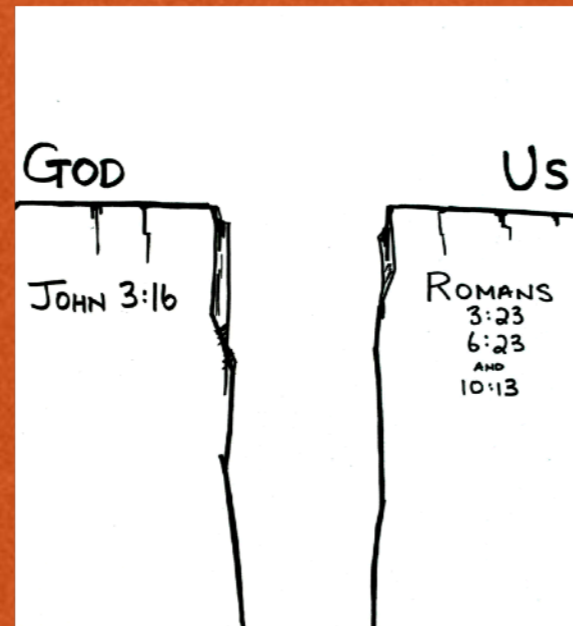 GOD
US
JOHN 3:16
ROMANS
3:23
6:23
AND
10:13